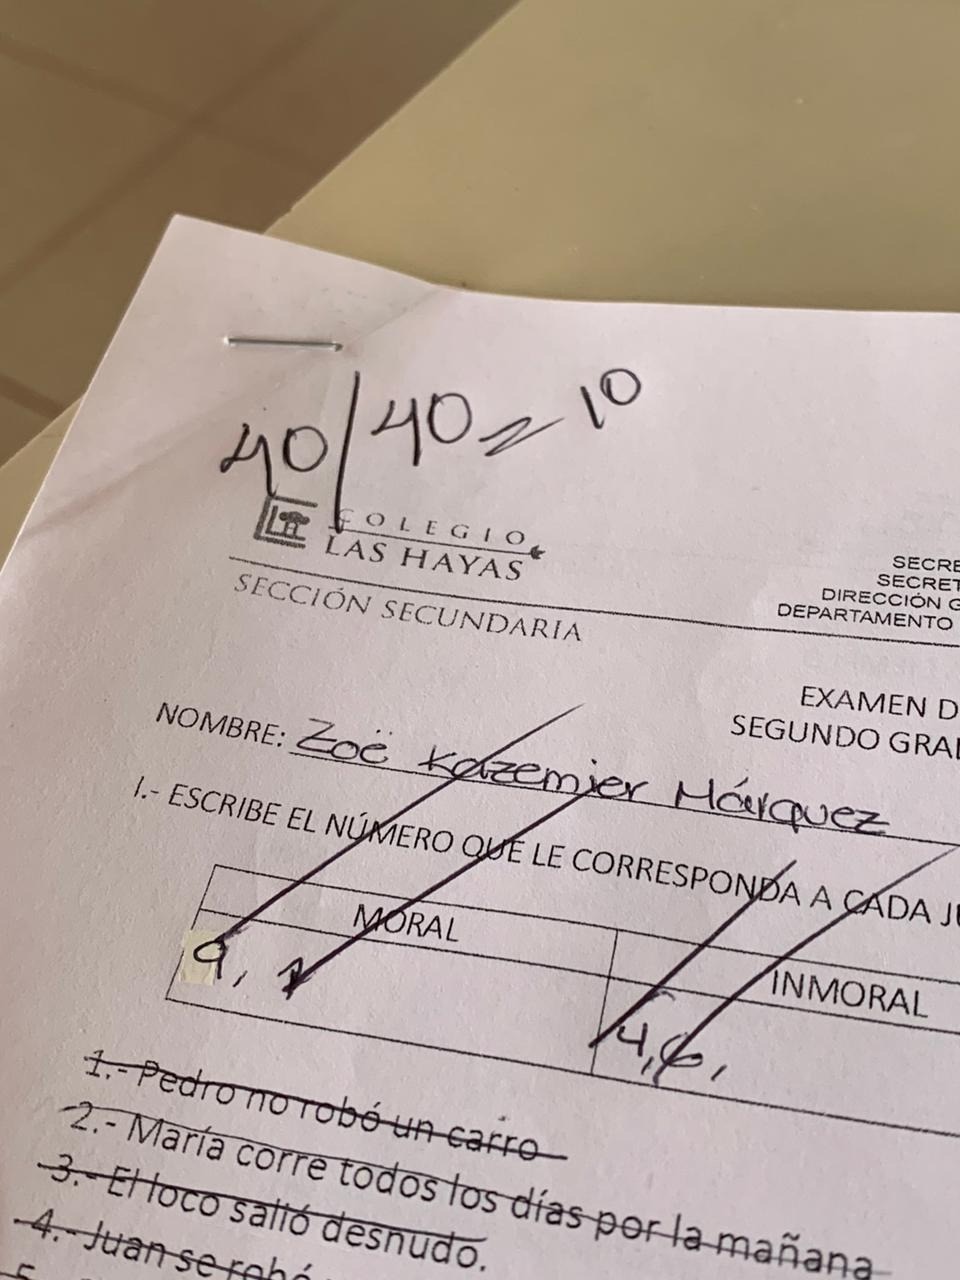 40/40 = 10
COLEGIO
LAS HAYAS
SECCIÓN SECUNDARIA
SECRE
SECRET
DIRECCIÓN G
DEPARTAMENTO
EXAMEN D
SEGUNDO GRA
NOMBRE: Zoë Kazemier Márquez
I.- ESCRIBE EL NÚMERO QUE LE CORRESPONDA A CADA JU
MORAL
INMORAL
9, 1
4,6,
1.- Pedro no robó un carro
2.- María corre todos los días por la mañana
3.- El loco salió desnudo.
4.- Juan se robó